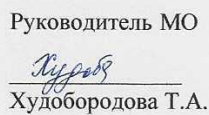 Руководитель МО
Худобо
Худобородова Т.А.